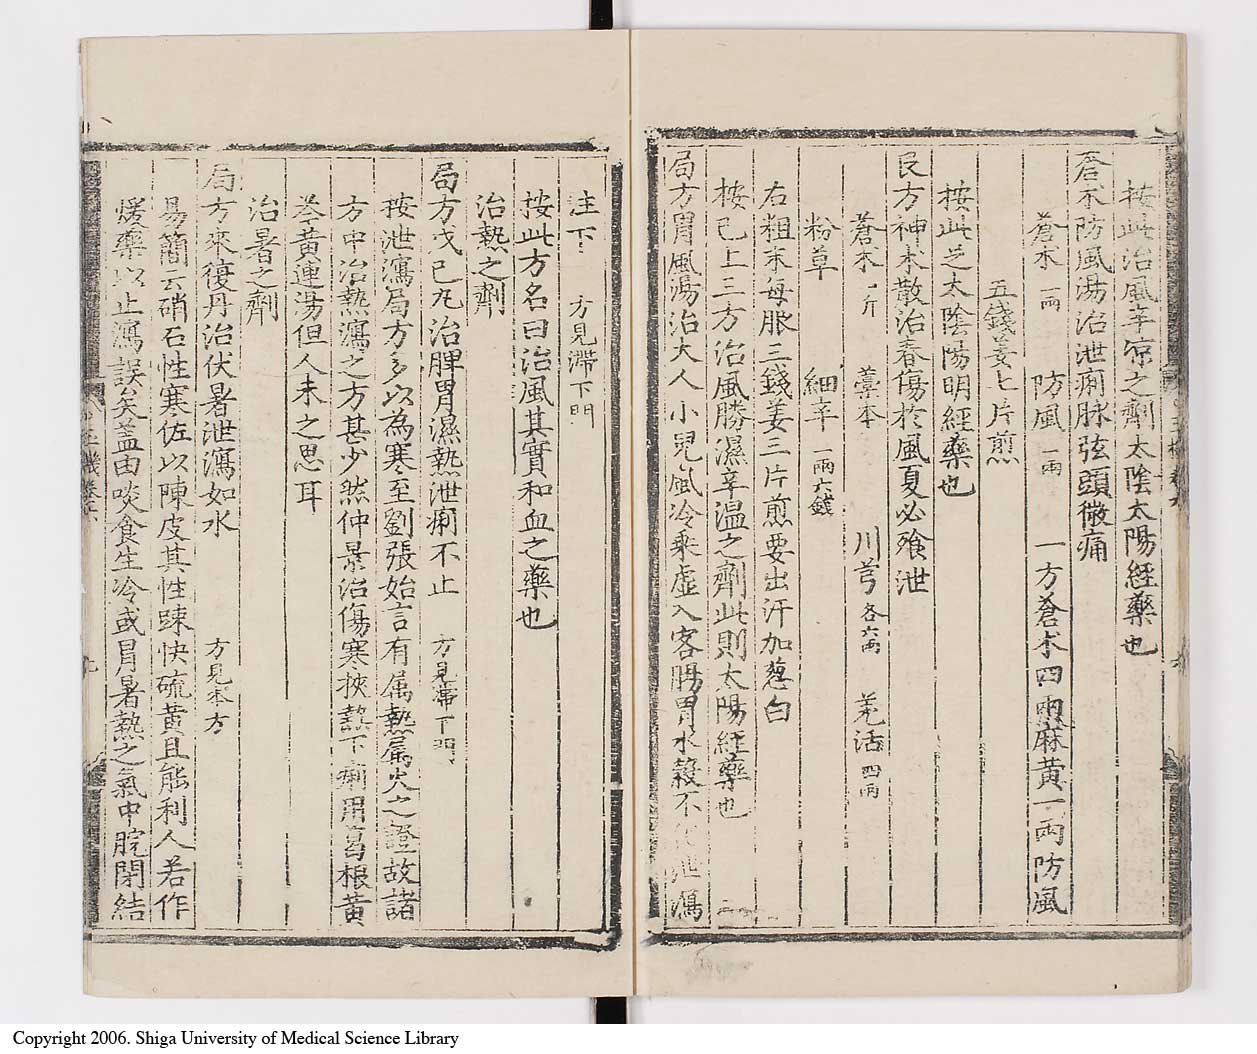 按此治風辛涼之劑太陰太陽經藥也
蒼朮防風湯治泄痢脉弦頭微痛
蒼朮一兩 防風一兩 一方蒼朮四兩麻黄一兩防風
五錢姜七片煎
良方神朮散治春傷於風夏必飱泄
按此足太陰陽明經藥也
蒼朮一斤 藁本 川芎各六兩 羌活四兩
粉草 細辛一兩六錢
右粗末每服三錢姜三片煎要出汗加葱白
按已上三方治風勝濕辛温之劑此則太陽經藥也
局方胃風湯治大人小兒風冷乘虚入客腸胃水穀不化泄瀉
注下 方見滯下門
按此方名曰治風其實和血之藥也
治熱之劑
局方戊已丸治脾胃濕熱泄痢不止 方見滯下門
按泄瀉局方多以為寒至劉張始言有属熱属火之證故諸
方中治熱瀉之方甚少然仲景治傷寒挾熱下痢用葛根黄
芩黄連湯但人未之思耳
治暑之劑
局方來復丹治伏暑泄瀉如水 方見本方
易簡云硝石性寒佐以陳皮其性踈快硫黄且能利人若作
煖藥以止瀉誤矣盖由啖食生冷或冒暑熱之氣中脘閉結
玉機 卷六
九
Copyright 2006. Shiga University of Medical Science Library